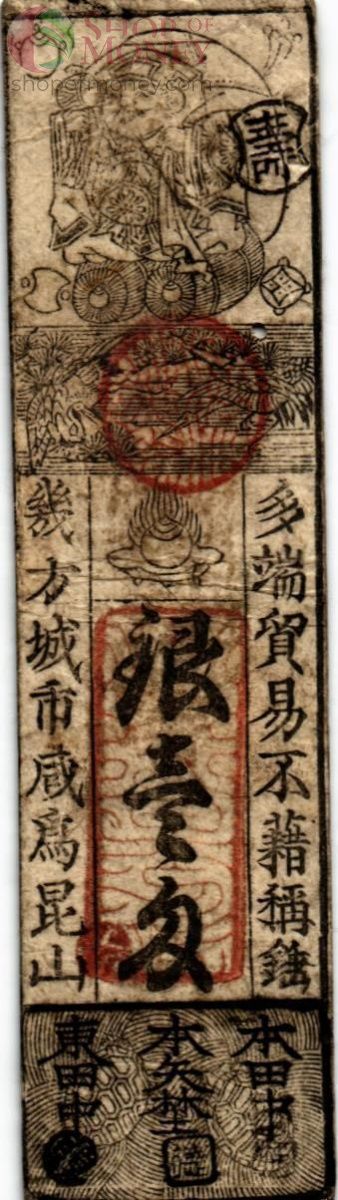 SHOP OF
MONEY
shopofmoney.com
壽
多端貿易不藉稱錘
銀壹匁
幾方城市咸為昆山
本田中
東田中